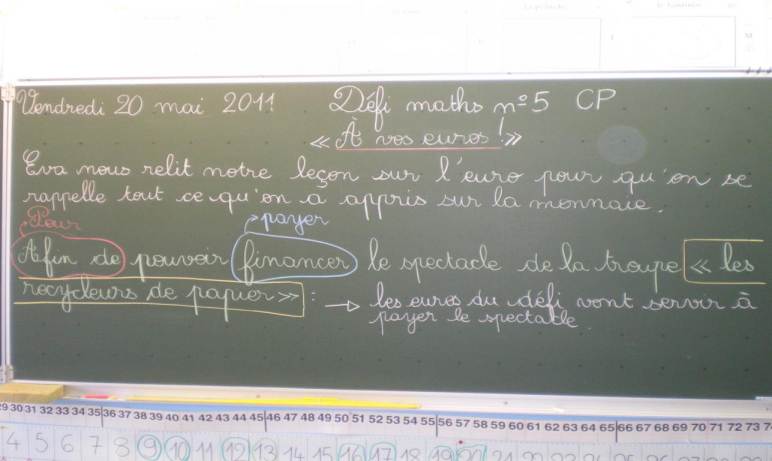 Vendredi 20 mai 2011 Défi maths n°5 CP
« À vos euros ! »
Eva nous relit notre leçon sur l'euro pour qu'on se
rappelle tout ce qu'on a appris sur la monnaie.
Pour payer
Afin de pouvoir financer le spectacle de la troupe « les
recycleurs de papier » : → les euros du défi vont servir à
payer le spectacle.
29 30 31 32 33 34 35 36 37 38 39 40 41 42 43 44 45 46 47 48 49 50 51 52 53 54 55 56 57 58 59 60 61 62 63 64 65 66 67 68 69 70 71 72 73
4 5 6 7 8 9 10 11 12 13 14 15 16 17 18 19 20 21